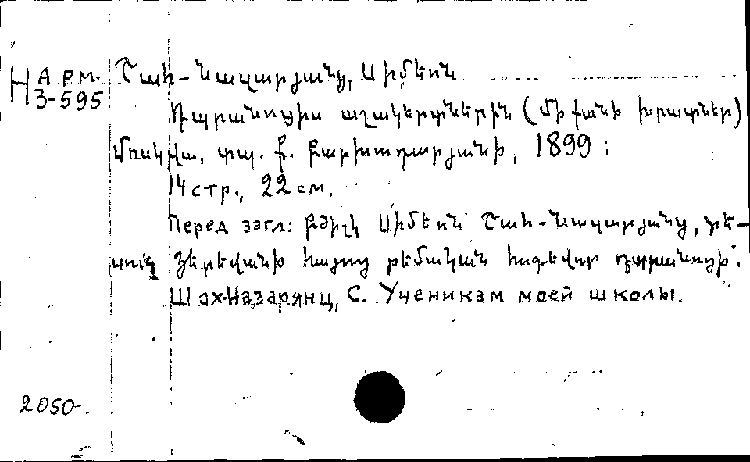 Н Арм. 3-595
Շահ-Նազարյանց, Սիմեոն
Դպրանոցիս աշակերտներին (Մի քանի խրատներ)
Մոսկվա, տպ. Բարխուդարյանի, 1899:
14 стр., 22 см.
Перед загл: Բժիշկ Սիմեոն Շահ-Նազարյանց, տե-
սուչ Երեվանի հայոց թեմական հոգեվոր դպրանոցի.
Шах-Назарянц, С. Ученикам моей школы.
2050-.